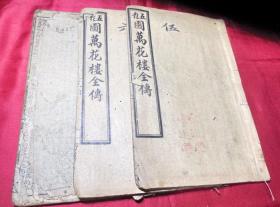 五
彩
圖萬花楼全傳
六
五
彩
圖萬花楼全傳
伍